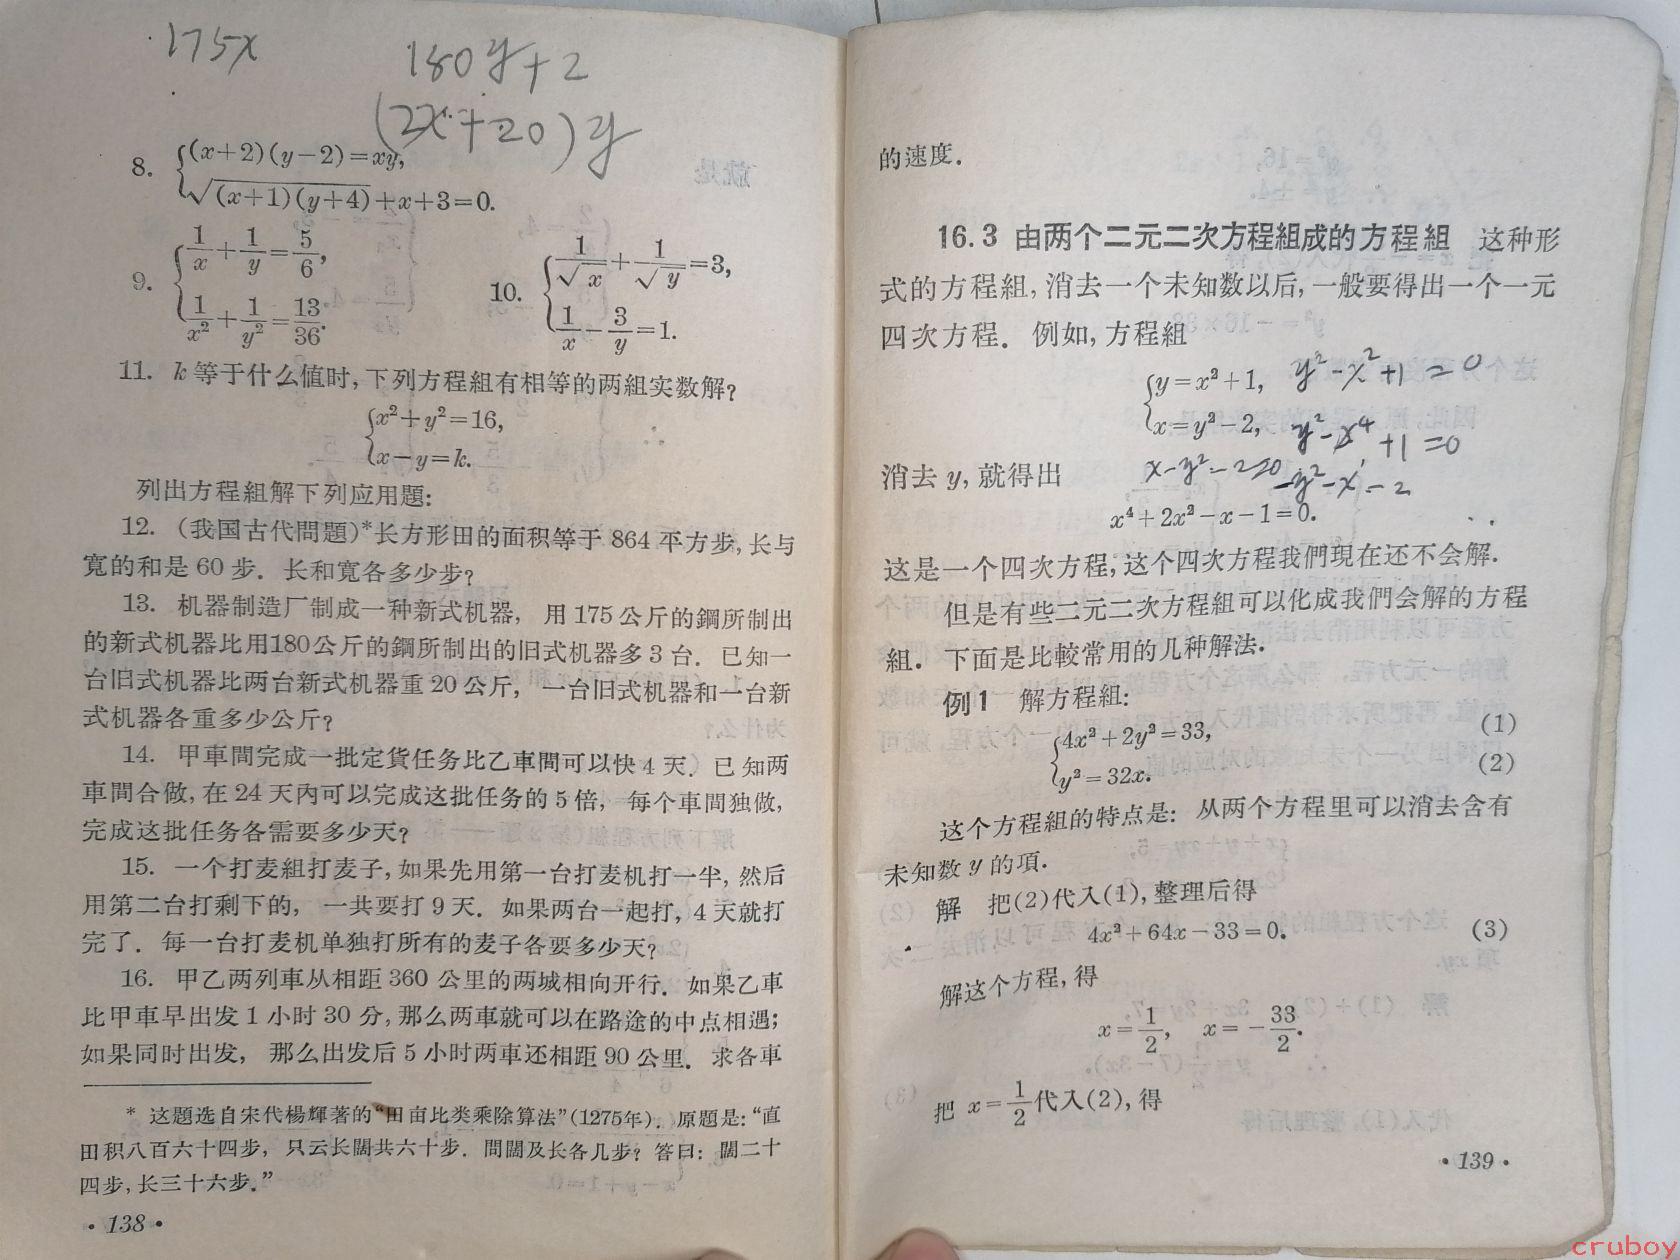 175x
180y+2
(2x+20)y
8. {(x+2)(y-2)=xy,
√(x+1)(y+4)+x+3=0.
9. {1/x+1/y=5/6,
1/x²+1/y²=13/36.
10. {1/√x+1/√y=3,
1/x-3/y=1.
11. k等于什么值时,下列方程組有相等的两組实数解?
{x²+y²=16,
x-y=k.
列出方程組解下列应用題:
12. (我国古代問題)*长方形田的面积等于864平方步,长与
寬的和是60步.长和寬各多少步?
13. 机器制造厂制成一种新式机器,用175公斤的鋼所制出
的新式机器比用180公斤的鋼所制出的旧式机器多3台.已知一
台旧式机器比两台新式机器重20公斤,一台旧式机器和一台新
式机器各重多少公斤?
14. 甲車間完成一批定貨任务比乙車間可以快4天.已知两
車間合做,在24天內可以完成这批任务的5倍,每个車間独做,
完成这批任务各需要多少天?
15. 一个打麦組打麦子,如果先用第一台打麦机打一半,然后
用第二台打剩下的,一共要打9天.如果两台一起打,4天就打
完了.每一台打麦机单独打所有的麦子各要多少天?
16. 甲乙两列車从相距360公里的两城相向开行.如果乙車
比甲車早出发1小时30分,那么两車就可以在路途的中点相遇;
如果同时出发,那么出发后5小时两車还相距90公里.求各車
* 这題选自宋代楊輝著的“田亩比类乘除算法”(1275年).原題是:“直
田积八百六十四步,只云长闊共六十步.問闊及长各几步?答曰:闊二十
四步,长三十六步.”
·138·
的速度.
16.3 由两个二元二次方程組成的方程組 这种形
式的方程組,消去一个未知数以后,一般要得出一个一元
四次方程.例如,方程組
{y=x²+1, y²-x²+1=0
x=y²-2, y²-x⁴+1=0
消去y,就得出 x-y²-2=0 -y²-x-2
x⁴+2x²-x-1=0.
这是一个四次方程,这个四次方程我們現在还不会解.
但是有些二元二次方程組可以化成我們会解的方程
組.下面是比較常用的几种解法.
例1 解方程組:
{4x²+2y²=33, (1)
y²=32x. (2)
这个方程組的特点是:从两个方程里可以消去含有
未知数y的項.
解 把(2)代入(1),整理后得
4x²+64x-33=0. (3)
解这个方程,得
x=1/2, x=-33/2.
把x=1/2代入(2),得
·139·
cruboy